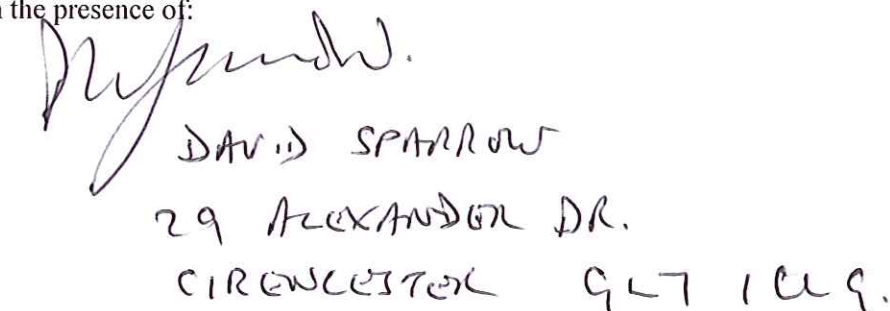 the presence of:
DAVID SPARROW
29 ALEXANDER DR.
CIRENCESTER GL7